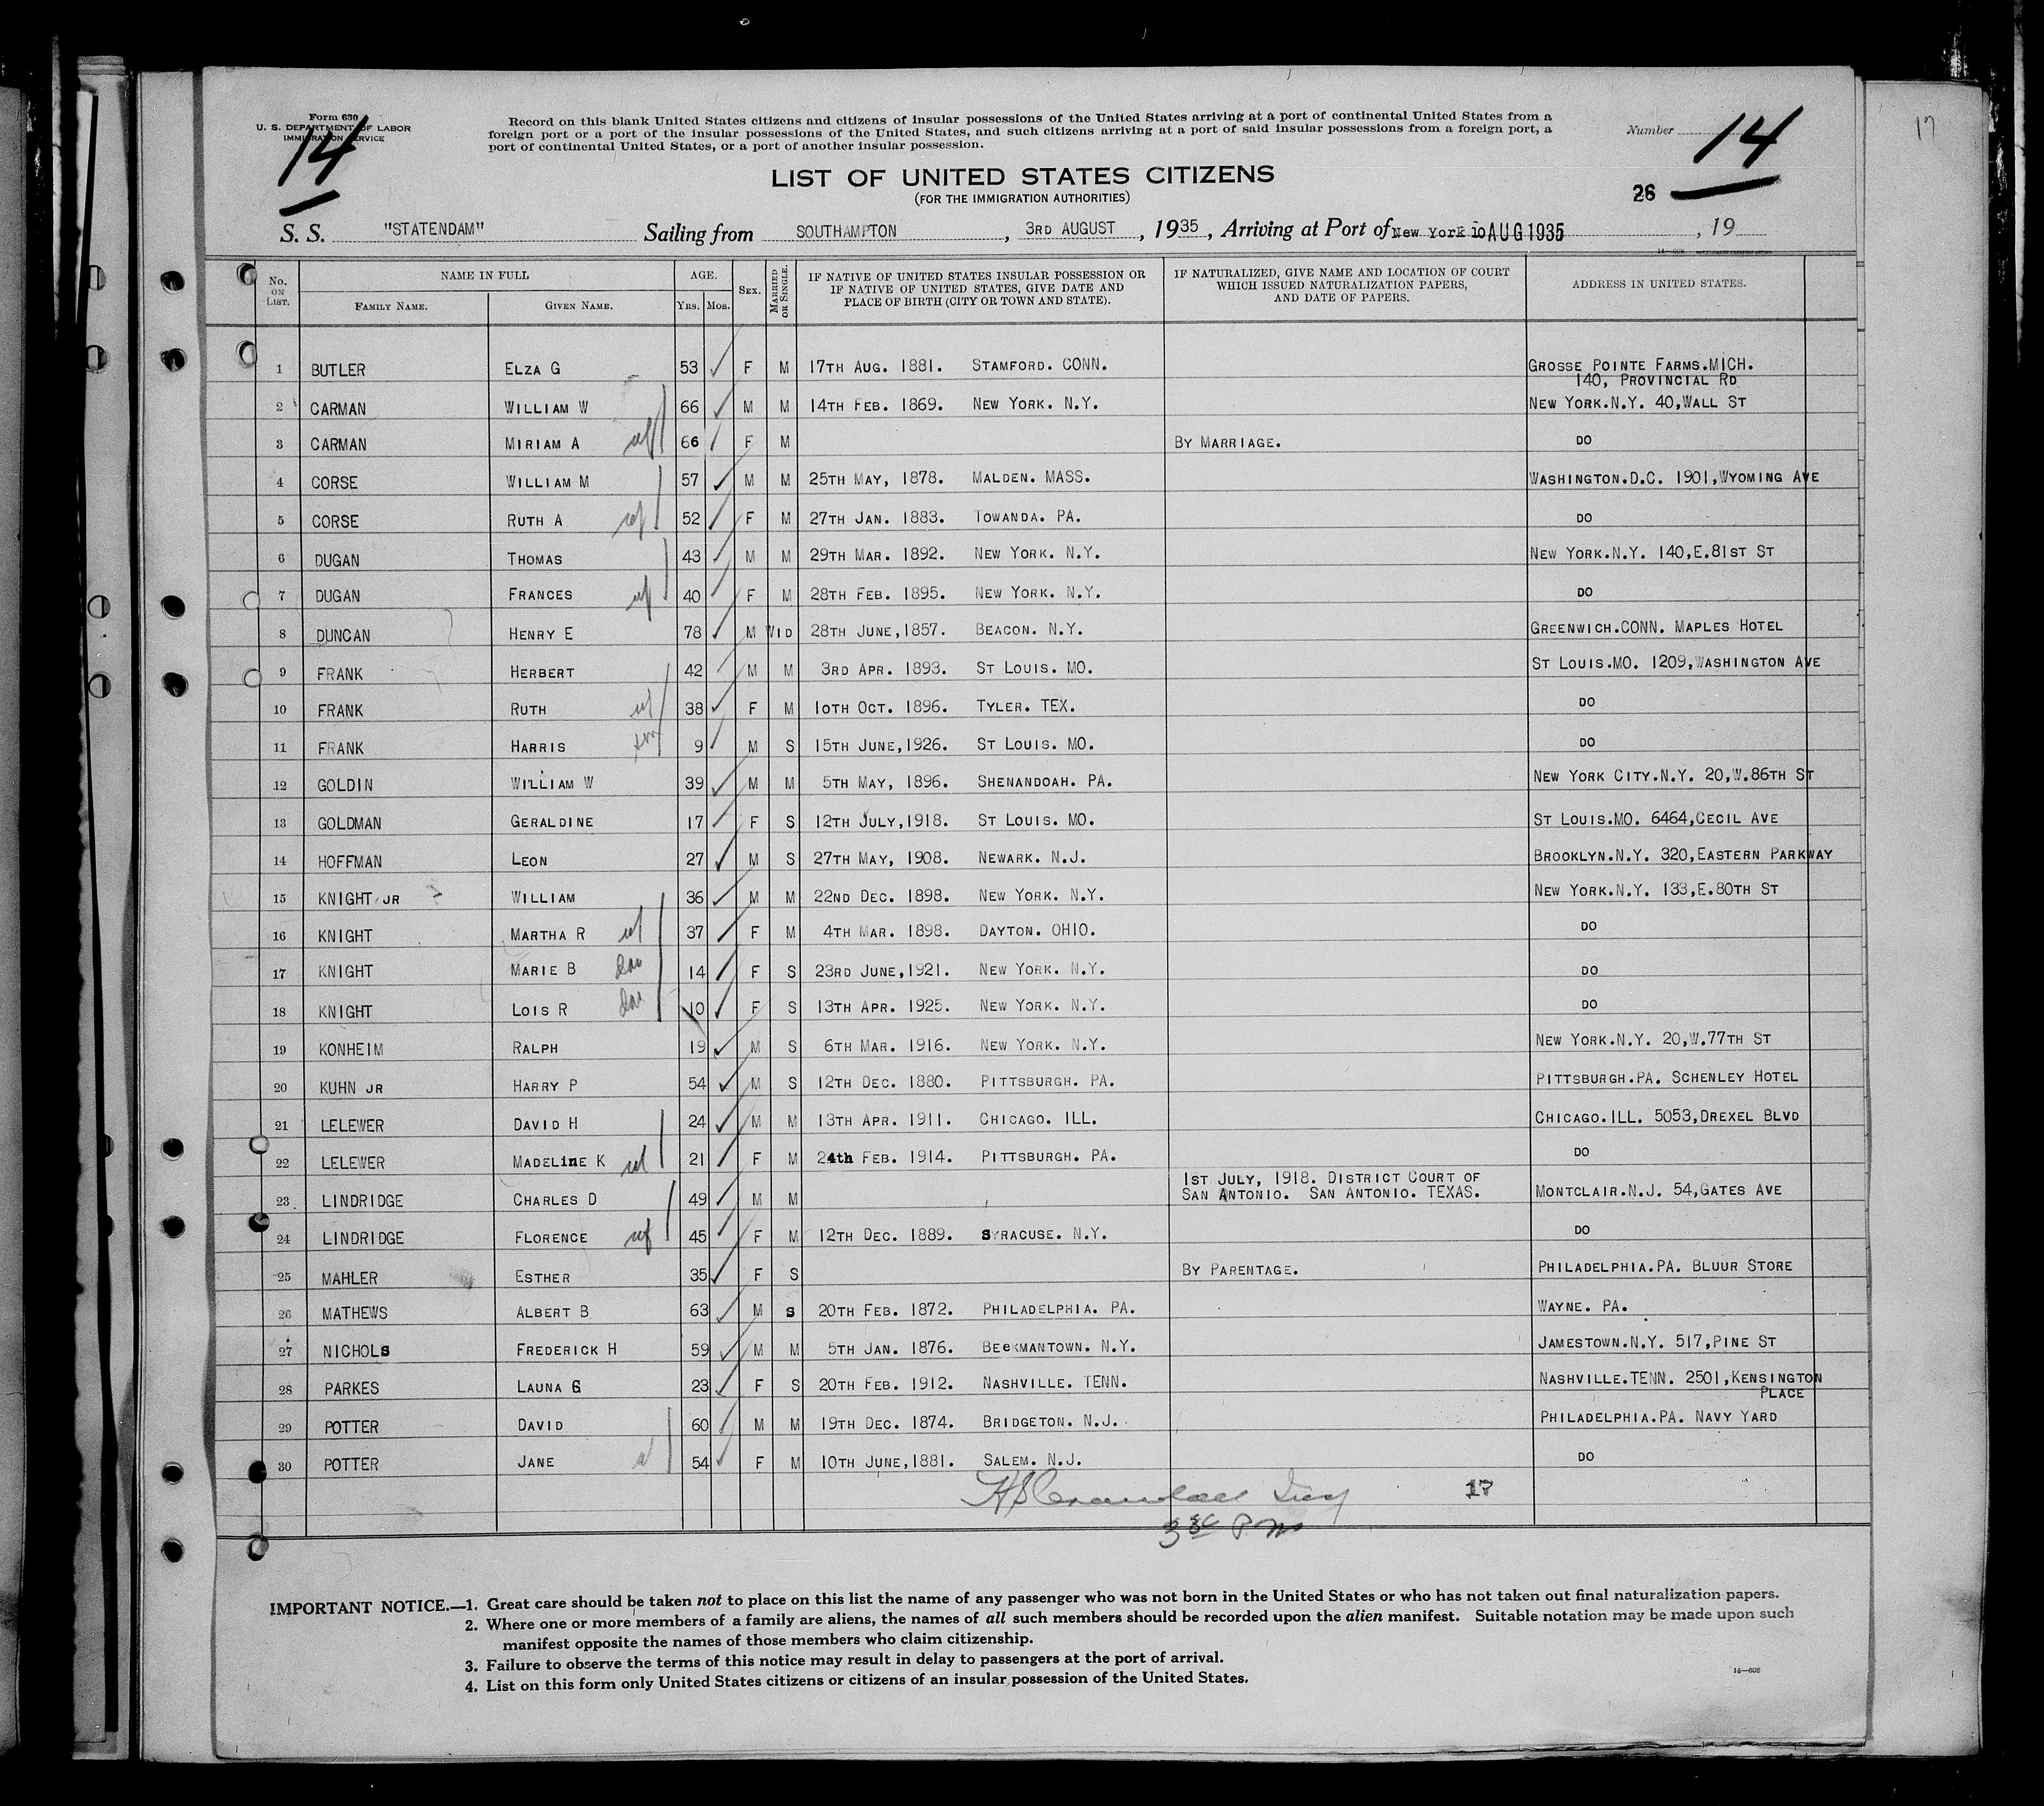 17
Form 630
U. S. DEPARTMENT OF LABOR
IMMIGRATION SERVICE
14
Record on this blank United States citizens and citizens of insular possessions of the United States arriving at a port of continental United States from a
foreign port or a port of the insular possessions of the United States, and such citizens arriving at a port of said insular possessions from a foreign port, a
port of continental United States, or a port of another insular possession.
Number 14
LIST OF UNITED STATES CITIZENS
(FOR THE IMMIGRATION AUTHORITIES)
26
S. S. "STATENDAM" Sailing from SOUTHAMPTON, 3RD AUGUST, 1935, Arriving at Port of New York 10 AUG 1935, 19
No. ON LIST. NAME IN FULL FAMILY NAME. GIVEN NAME. AGE. YRS. MOS. SEX. MARRIED OR SINGLE. IF NATIVE OF UNITED STATES INSULAR POSSESSION OR IF NATIVE OF UNITED STATES, GIVE DATE AND PLACE OF BIRTH (CITY OR TOWN AND STATE). IF NATURALIZED, GIVE NAME AND LOCATION OF COURT WHICH ISSUED NATURALIZATION PAPERS, AND DATE OF PAPERS. ADDRESS IN UNITED STATES.
1 BUTLER ELZA G 53 F M 17TH AUG. 1881. STAMFORD. CONN. GROSSE POINTE FARMS.MICH.
140, PROVINCIAL RD
2 CARMAN WILLIAM W 66 M M 14TH FEB. 1869. NEW YORK. N.Y. NEW YORK.N.Y. 40,WALL ST
3 CARMAN MIRIAM A wf 66 F M BY MARRIAGE. DO
4 CORSE WILLIAM M 57 M M 25TH MAY, 1878. MALDEN. MASS. WASHINGTON.D.C. 1901,WYOMING AVE
5 CORSE RUTH A wf 52 F M 27TH JAN. 1883. TOWANDA. PA. DO
6 DUGAN THOMAS 43 M M 29TH MAR. 1892. NEW YORK. N.Y. NEW YORK.N.Y. 140,E.81ST ST
7 DUGAN FRANCES wf 40 F M 28TH FEB. 1895. NEW YORK. N.Y. DO
8 DUNCAN HENRY E 78 M WID 28TH JUNE,1857. BEACON. N.Y. GREENWICH.CONN. MAPLES HOTEL
9 FRANK HERBERT 42 M M 3RD APR. 1893. ST LOUIS. MO. ST LOUIS.MO. 1209,WASHINGTON AVE
10 FRANK RUTH wf 38 F M 10TH OCT. 1896. TYLER. TEX. DO
11 FRANK HARRIS 9 M S 15TH JUNE,1926. ST LOUIS. MO. DO
12 GOLDIN WILLIAM W 39 M M 5TH MAY, 1896. SHENANDOAH. PA. NEW YORK CITY.N.Y. 20,W.86TH ST
13 GOLDMAN GERALDINE 17 F S 12TH JULY,1918. ST LOUIS. MO. ST LOUIS.MO. 6464,CECIL AVE
14 HOFFMAN LEON 27 M S 27TH MAY, 1908. NEWARK. N.J. BROOKLYN.N.Y. 320,EASTERN PARKWAY
15 KNIGHT JR WILLIAM 36 M M 22ND DEC. 1898. NEW YORK. N.Y. NEW YORK.N.Y. 133,E.80TH ST
16 KNIGHT MARTHA R wf 37 F M 4TH MAR. 1898. DAYTON. OHIO. DO
17 KNIGHT MARIE B dau 14 F S 23RD JUNE,1921. NEW YORK. N.Y. DO
18 KNIGHT LOIS R dau 10 F S 13TH APR. 1925. NEW YORK. N.Y. DO
19 KONHEIM RALPH 19 M S 6TH MAR. 1916. NEW YORK. N.Y. NEW YORK.N.Y. 20,W.77TH ST
20 KUHN JR HARRY P 54 M S 12TH DEC. 1880. PITTSBURGH. PA. PITTSBURGH.PA. SCHENLEY HOTEL
21 LELEWER DAVID H 24 M M 13TH APR. 1911. CHICAGO. ILL. CHICAGO.ILL. 5053,DREXEL BLVD
22 LELEWER MADELINE K wf 21 F M 24th FEB. 1914. PITTSBURGH. PA. DO
1ST JULY, 1918. DISTRICT COURT OF
23 LINDRIDGE CHARLES D 49 M M SAN ANTONIO. SAN ANTONIO. TEXAS. MONTCLAIR.N.J. 54,GATES AVE
24 LINDRIDGE FLORENCE wf 45 F M 12TH DEC. 1889. SYRACUSE. N.Y. DO
25 MAHLER ESTHER 35 F S BY PARENTAGE. PHILADELPHIA.PA. BLUUR STORE
26 MATHEWS ALBERT B 63 M S 20TH FEB. 1872. PHILADELPHIA. PA. WAYNE. PA.
27 NICHOLS FREDERICK H 59 M M 5TH JAN. 1876. BEEKMANTOWN. N.Y. JAMESTOWN.N.Y. 517,PINE ST
28 PARKES LAUNA G 23 F S 20TH FEB. 1912. NASHVILLE. TENN. NASHVILLE.TENN. 2501,KENSINGTON
PLACE
29 POTTER DAVID 60 M M 19TH DEC. 1874. BRIDGETON. N.J. PHILADELPHIA.PA. NAVY YARD
30 POTTER JANE 54 F M 10TH JUNE,1881. SALEM. N.J. DO
17
IMPORTANT NOTICE.—1. Great care should be taken not to place on this list the name of any passenger who was not born in the United States or who has not taken out final naturalization papers.
2. Where one or more members of a family are aliens, the names of all such members should be recorded upon the alien manifest. Suitable notation may be made upon such
manifest opposite the names of those members who claim citizenship.
3. Failure to observe the terms of this notice may result in delay to passengers at the port of arrival.
4. List on this form only United States citizens or citizens of an insular possession of the United States.
14—608